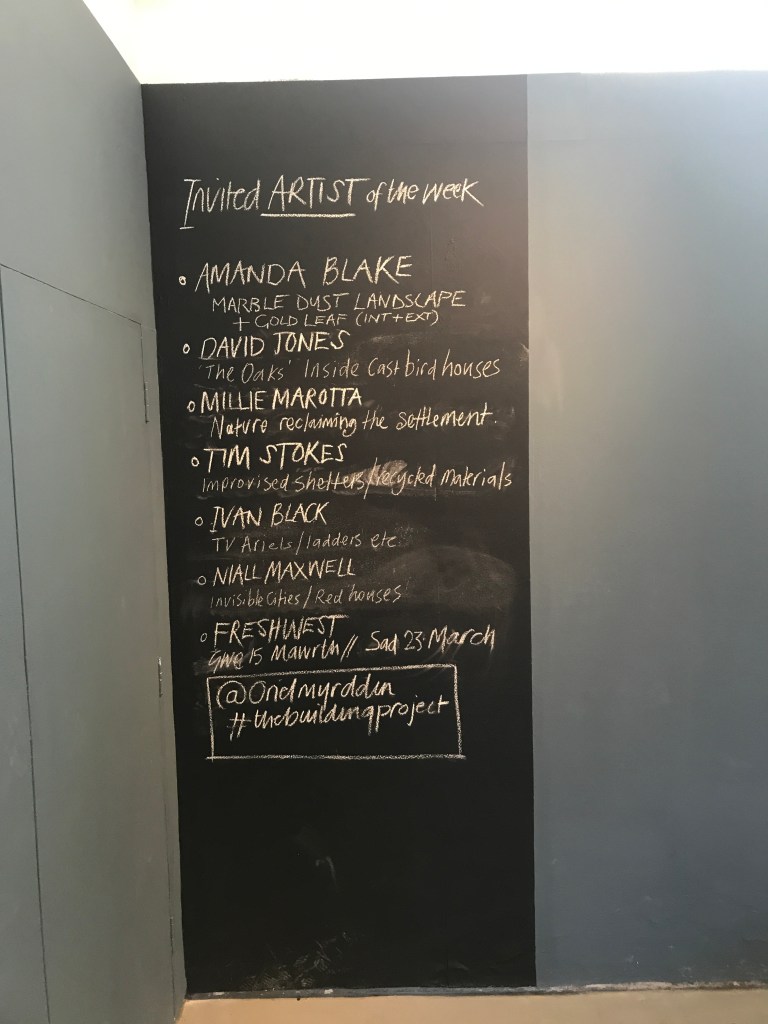 Invited ARTIST of the week
AMANDA BLAKE
MARBLE DUST LANDSCAPE
+ GOLD LEAF (INT+EXT)
DAVID JONES
'The Oaks' Inside Cast bird houses
MILLIE MAROTTA
Nature reclaiming the settlement.
TIM STOKES
Improvised shelters/recycled Materials
IVAN BLACK
TV Ariels/ladders etc
NIALL MAXWELL
Invisible Cities / Red houses
FRESHWEST
Gwe 15 Mawrth // Sad 23 March
@Orielmyrddin
#thebuildingproject